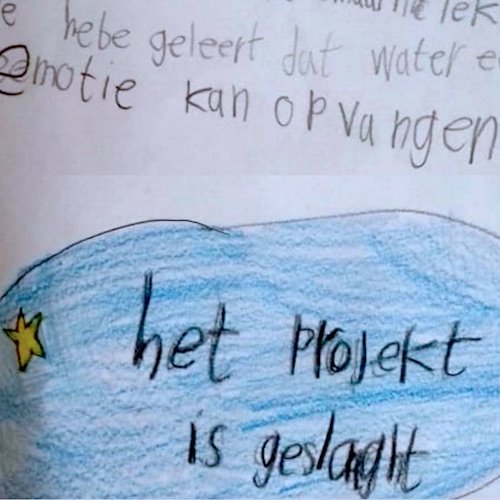 e
hebe geleert dat water e
emotie kan opvangen
het projekt
is geslaght